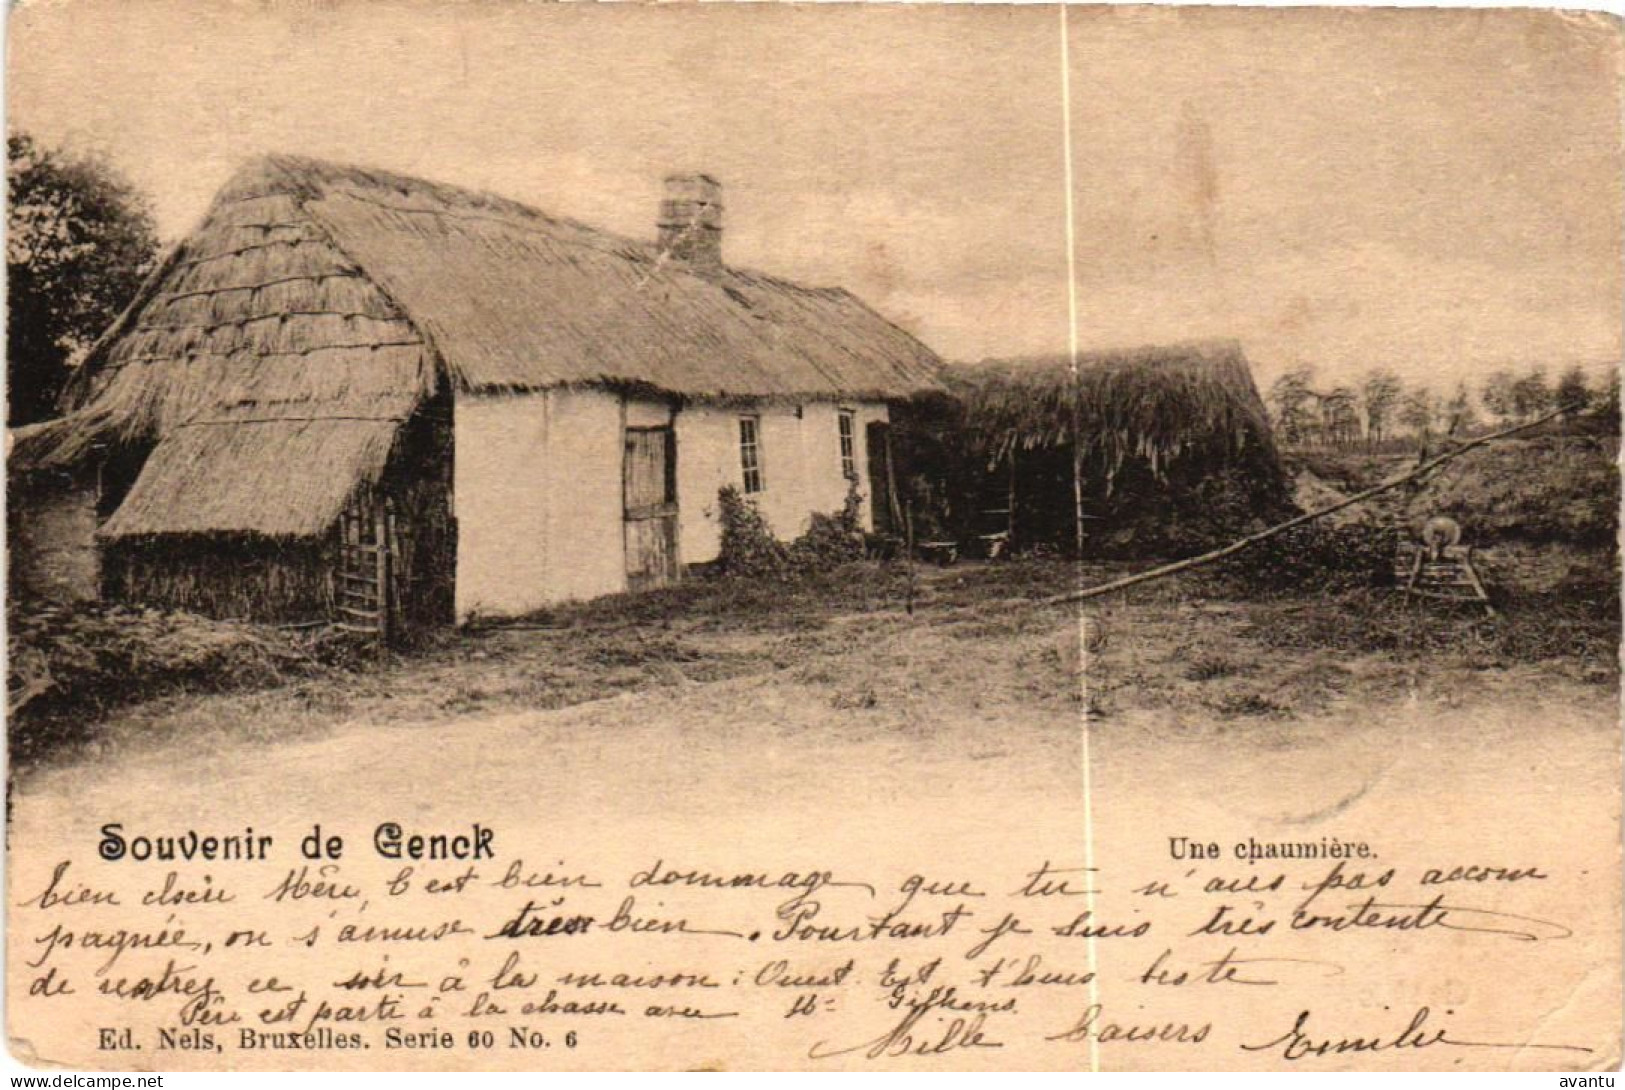 Souvenir de Genck
Une chaumière.
bien chère Mère, C'est bien dommage que tu n'aies pas accom
pagnée, on s'amuse très bien. Pourtant je suis très contente
de rentrer ce soir à la maison: Ouest Est t'huis beste
Père est parti à la chasse avec
Mille baisers Emilie
Ed. Nels, Bruxelles. Serie 60 No. 6
avantu